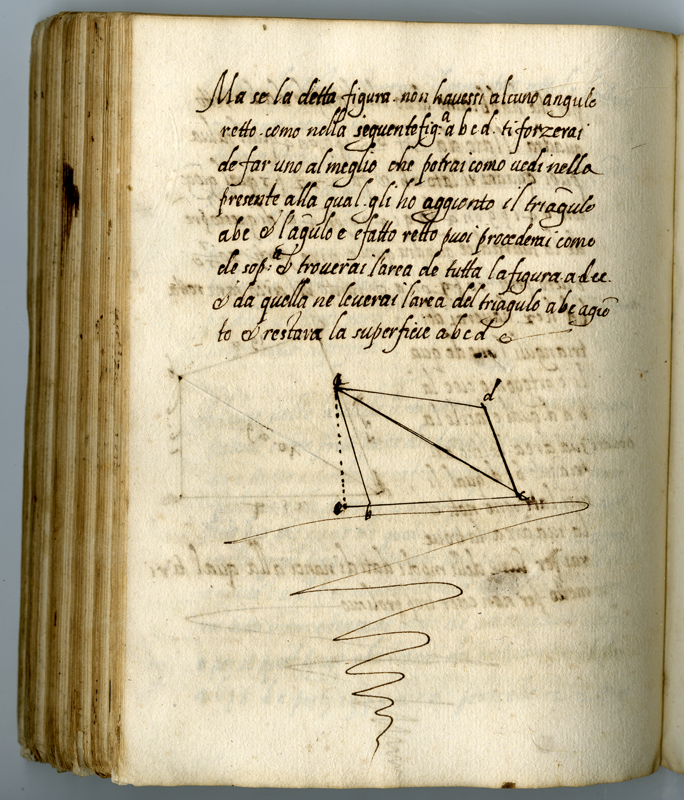 Ma se la detta figura. non havessi alcuno angulo
retto. como nella sequente fig:ª a b c d. ti forzerai
de far uno al meglio che potrai como vedi nella
presente alla qual. gli ho aggionto il triãgulo
a b e & l'ãgulo e efatto retto puoi procederai como
de sop:ª & troverai l'area de tutta la figura. a d c e.
& da quella ne leverai l'area del triãgulo a b e agiõ
to & restara la superficie a b c d
d
c
b